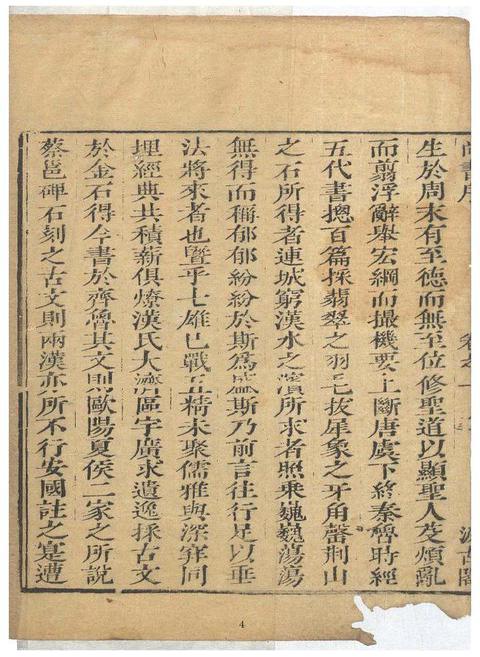 尚書序
汲古閣
生於周末有至德而無至位修聖道以顯聖人芟煩亂
而翦浮辭舉宏綱而撮機要上斷唐虞下終秦魯時經
五代書摠百篇採翡翠之羽毛拔犀象之牙角罄荆山
之石所得者連城窮漢水之濱所求者照乗巍巍蕩蕩
無得而稱郁郁紛紛於斯爲盛斯乃前言往行足以垂
法將來者也曁乎七雄已戰五精未聚儒雅與深穽同
埋經典共積薪俱燎漢氏大濟區宇廣求遺逸採古文
於金石得今書於齊魯其文則歐陽夏侯二家之所說
蔡邕碑石刻之古文則兩漢亦所不行安國註之寔遭
4